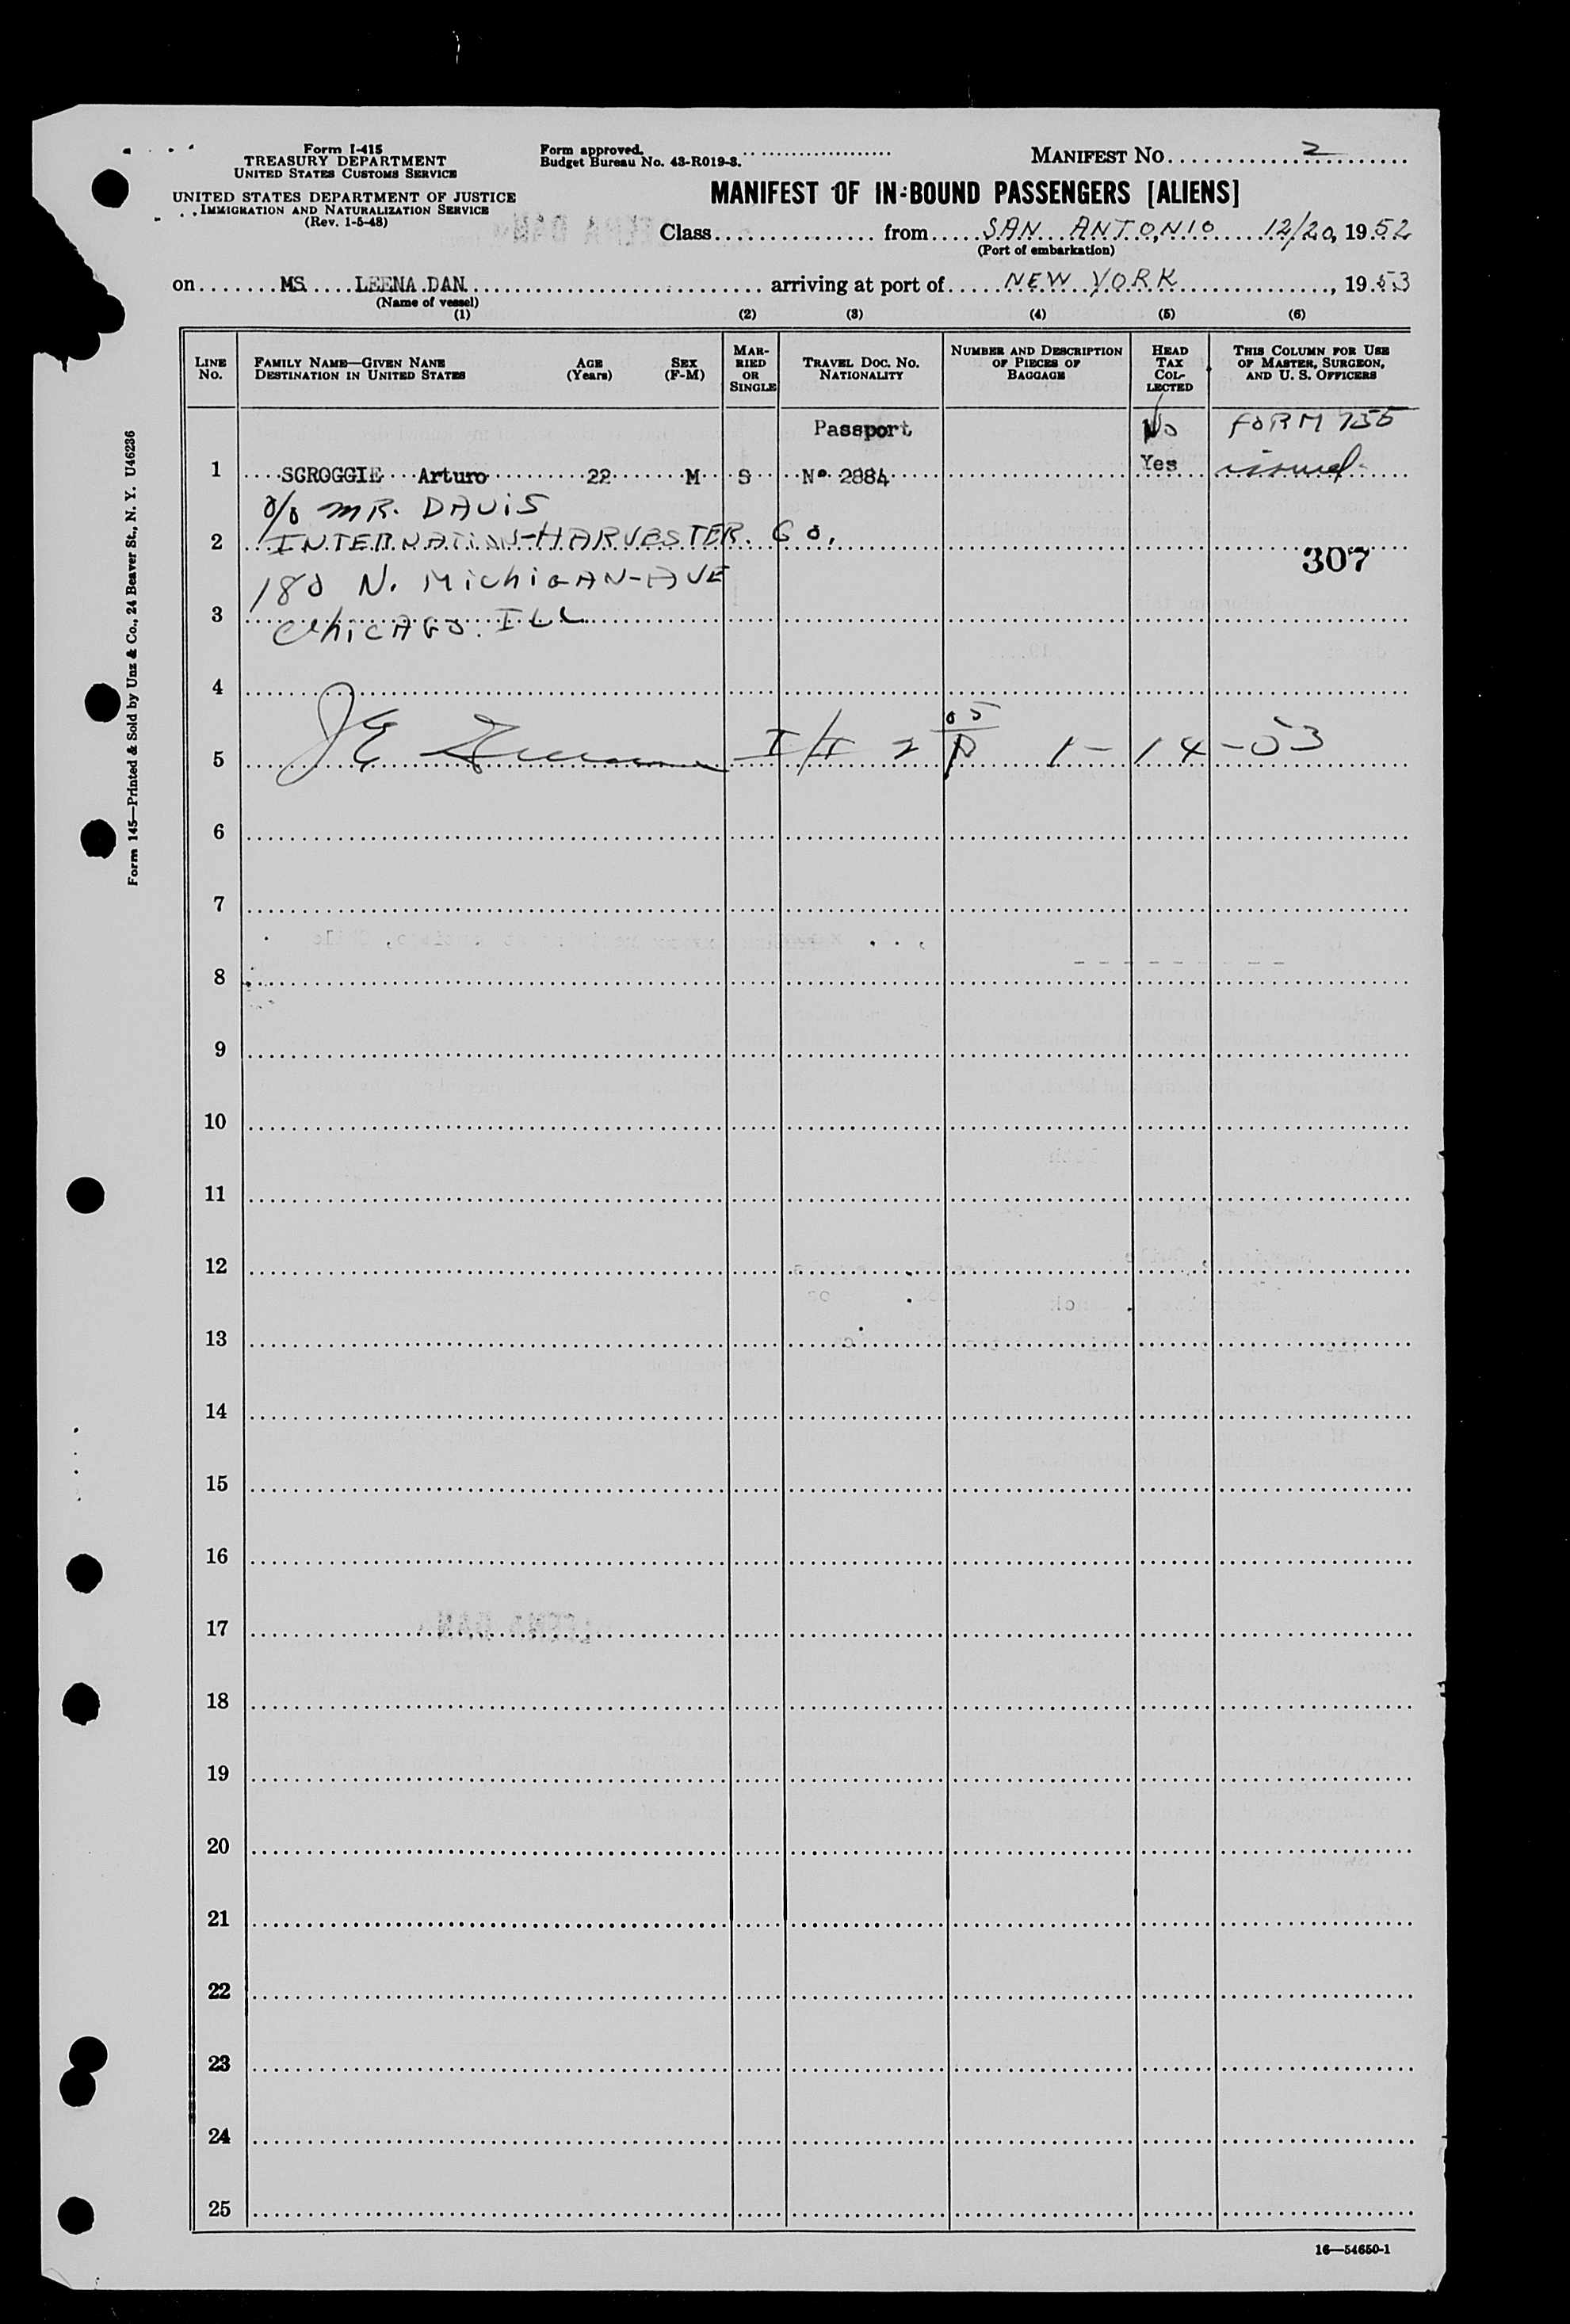 Form I-415
TREASURY DEPARTMENT
UNITED STATES CUSTOMS SERVICE
UNITED STATES DEPARTMENT OF JUSTICE
IMMIGRATION AND NATURALIZATION SERVICE
(Rev. 1-5-48)
Form approved.
Budget Bureau No. 43-R019-3.
MANIFEST NO. 2
MANIFEST OF IN-BOUND PASSENGERS [ALIENS]
Class from SAN ANTONIO 12/20, 1952
(Port of embarkation)
on MS LEENA DAN arriving at port of NEW YORK, 1953
(Name of vessel)
(1) (2) (3) (4) (5) (6)
LINE NO.
FAMILY NAME—GIVEN NANE
DESTINATION IN UNITED STATES
AGE (Years)
SEX (F-M)
MARRIED OR SINGLE
TRAVEL DOC. NO. NATIONALITY
NUMBER AND DESCRIPTION OF PIECES OF BAGGAGE
HEAD TAX COLLECTED
THIS COLUMN FOR USE OF MASTER, SURGEON, AND U. S. OFFICERS
Passport No FORM 755
1 SCROGGIE Arturo 22 M S Nº 2884 Yes issued
c/o MR. DAVIS
2 INTERNATION-HARVESTER. CO.
307
180 N. MICHIGAN-AVE
3 CHICAGO. ILL
4
5 1-14-53
6
7
8
9
10
11
12
13
14
15
16
17
18
19
20
21
22
23
24
25
16—54650-1
Form 145—Printed & Sold by Unz & Co., 24 Beaver St., N. Y. U46236